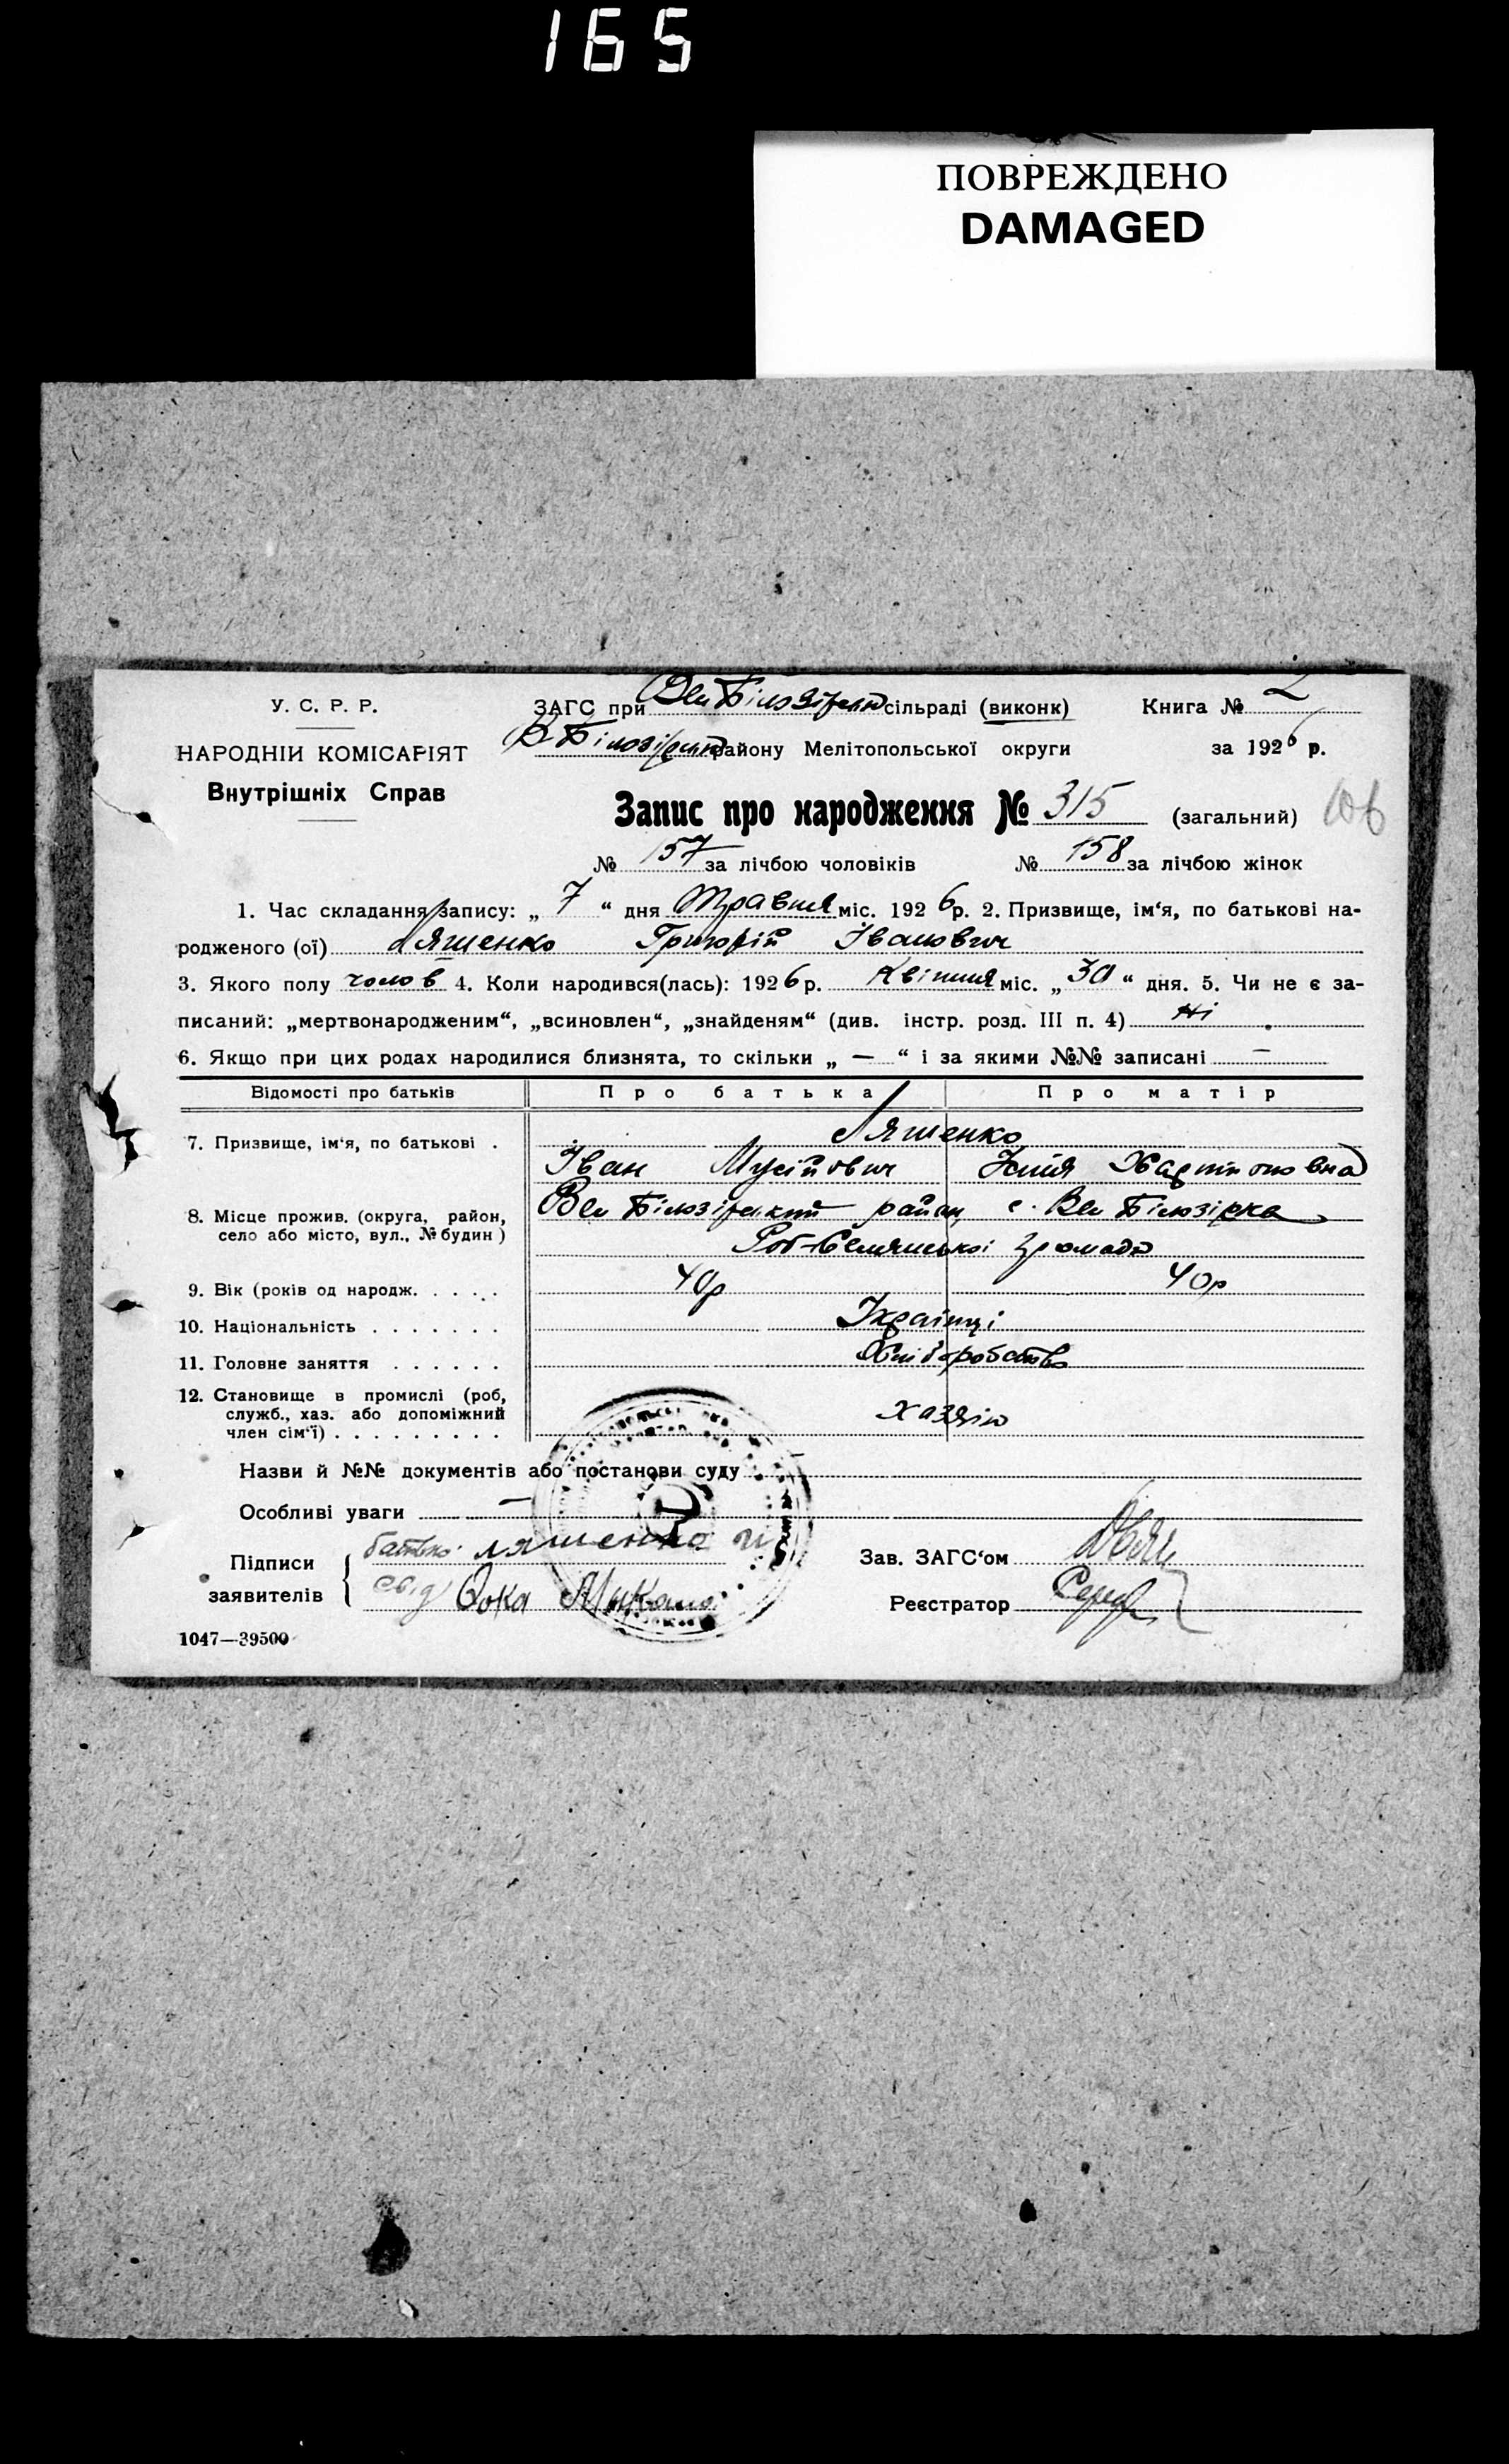 165
ПОВРЕЖДЕНО
DAMAGED
У. С. Р. Р.
НАРОДНІЙ КОМІСАРІЯТ
Внутрішніх Справ
ЗАГС при Вел Білозірській сільраді (виконк) Книга № 2
В-Білозірськ району Мелітопольської округи за 1926 р.
Запис про народження № 315 (загальний) 106
№ 157 за лічбою чоловіків № 158 за лічбою жінок
1. Час складання запису: „ 7 “ дня Травня міс. 1926 р. 2. Призвище, ім‘я, по батькові на-
родженого (ої) Ляшенко Григорій Іванович
3. Якого полу чолов 4. Коли народився(лась): 1926 р. Квітня міс. „ 30 “ дня. 5. Чи не є за-
писаний: „мертвонародженим“, „всиновлен“, „знайденям“ (див. інстр. розд. III п. 4) Ні
6. Якщо при цих родах народилися близнята, то скільки „ — “ і за якими №№ записані —
Відомості про батьків Про батька Про матір
7. Призвище, ім‘я, по батькові . Ляшенко
Іван Мусійович Харитоновна
8. Місце прожив. (округа, район, село або місто, вул., № будин) Вел Білозірський район, с. Вел Білозірка
Роб-Селянської громади
9. Вік (років од народж. . . . . 40р 40р
10. Національність . . . . . . . Українці
11. Головне заняття . . . . . . Хліборобство
12. Становище в промислі (роб,
служб., хаз. або допоміжний
член сім‘ї) . . . . . . . . . хазяїн
Назви й №№ документів або постанови суду
Особливі уваги —
Підписи заявителів { батько: Ляшенко И
свід Микола
Зав. ЗАГС‘ом
Реєстратор
1047—39500